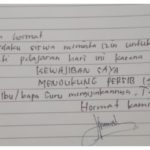 hormat
siswa meminta izin untuk
pelajaran hari ini karena
KEWAJIBAN SAYA
MENDUKUNG PERSIB
Ibu/bapa Guru mengizinkannya, T
Hormat kami